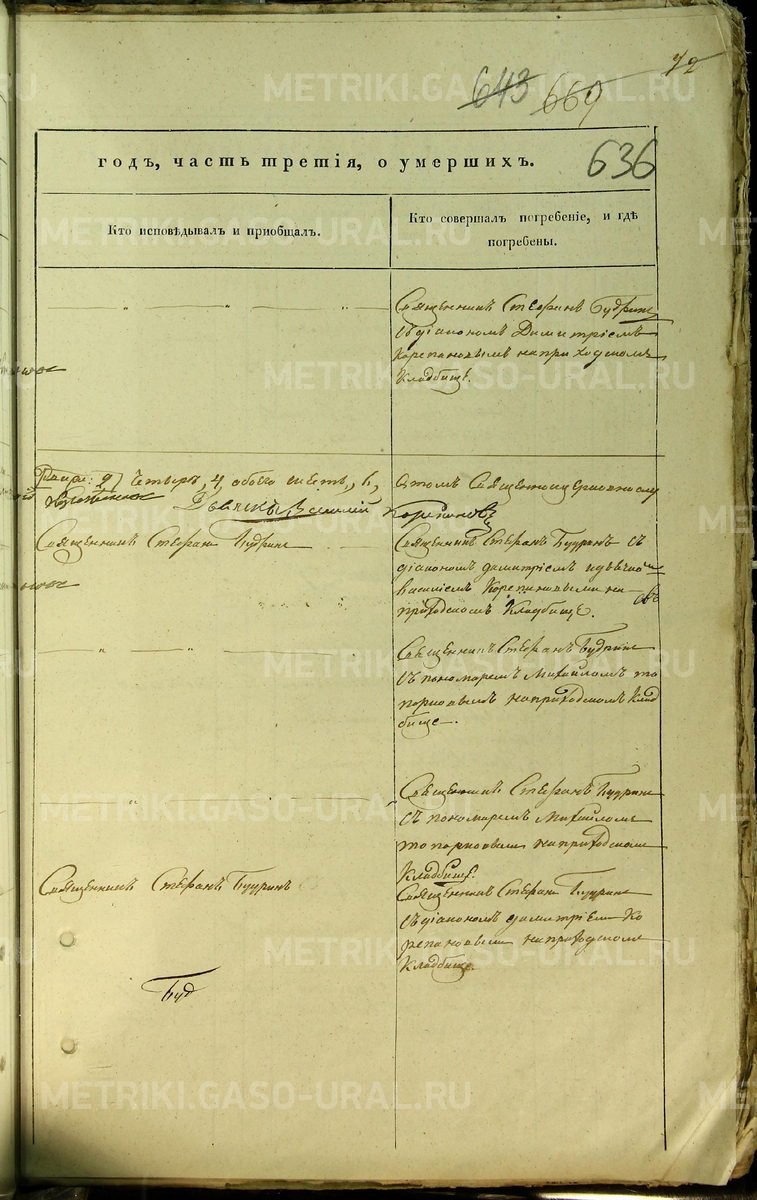 72
643 669
636
годъ, часть третія, о умершихъ.
Кто исповѣдывалъ и приобщалъ.
Кто совершалъ погребеніе, и гдѣ
погребены.
Священникъ Стефанъ Будринъ
съ діакономъ Димитріемъ
Корепановымъ на приходскомъ
кладбищѣ.
четыре, 4, обоего шесть, 6,
Священникъ Стефанъ Будринъ
Священникъ Стефанъ Будринъ съ
діакономъ Димитріемъ и дьячко
Василіемъ Корепановыми на
приходскомъ кладбище.
Священникъ Стефанъ Будринъ
съ пономаремъ Михаиломъ То
порковымъ на приходскомъ клад
бище.
Священникъ Стефанъ Будринъ
съ пономаремъ Михаиломъ
Топорковымъ на приходскомъ
кладбищѣ.
Священникъ Стефанъ Будринъ
Священникъ Стефанъ Будринъ
съ діакономъ Димитріемъ Ко
репановымъ на приходскомъ
кладбище.
Буд
METRIKI.GASO-URAL.RU